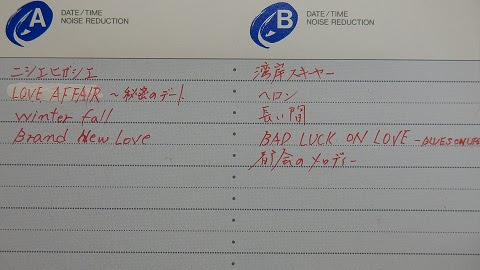 A DATE/TIME
NOISE REDUCTION
ニシエヒガシエ
LOVE AFFAIR ～秘密のデート
winter fall
Brand New Love
B DATE/TIME
NOISE REDUCTION
湾岸スキーヤー
ヘロン
長い間
BAD LUCK ON LOVE -BLUES ON LIFE
都会のメロディー